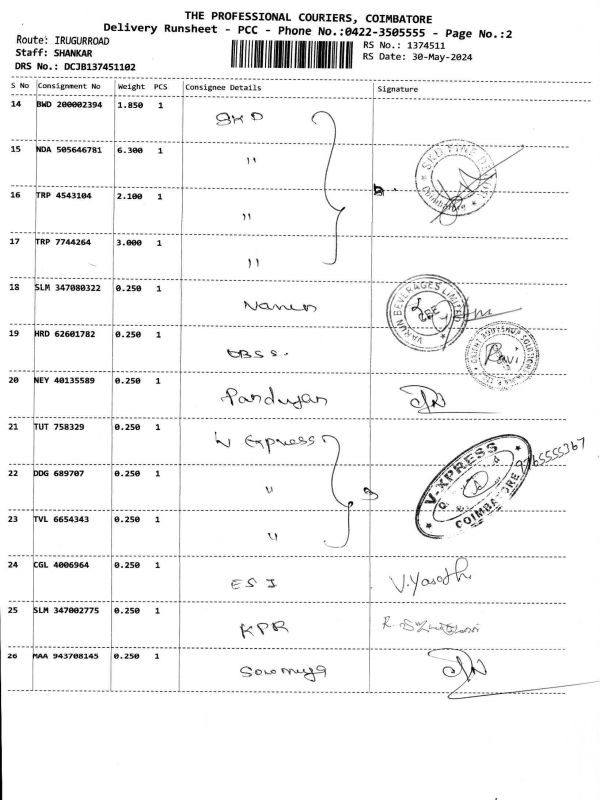 THE PROFESSIONAL COURIERS, COIMBATORE
Delivery Runsheet - PCC - Phone No.:0422-3505555 - Page No.:2
Route: IRUGURROAD
RS No.: 1374511
Staff: SHANKAR
RS Date: 30-May-2024
DRS No.: DCJB137451102
S No Consignment No Weight PCS Consignee Details Signature
14 BWD 200002394 1.850 1 SKD
15 NDA 505646781 6.300 1 "
16 TRP 4543104 2.100 1 "
17 TRP 7744264 3.000 1 "
18 SLM 347080322 0.250 1
VARUN BEVERAGES LIMITED
CBE
19 HRD 62601782 0.250 1 OBSS.
Ravi
20 NEY 40135589 0.250 1 Pandiyan
21 TUT 758329 0.250 1 V Express
V-XPRESS
COIMBATORE
22 DDG 689707 0.250 1 "
23 TVL 6654343 0.250 1 "
24 CGL 4006964 0.250 1 ESI
25 SLM 347002775 0.250 1 KPR
26 MAA 943708145 0.250 1 Sowmiya